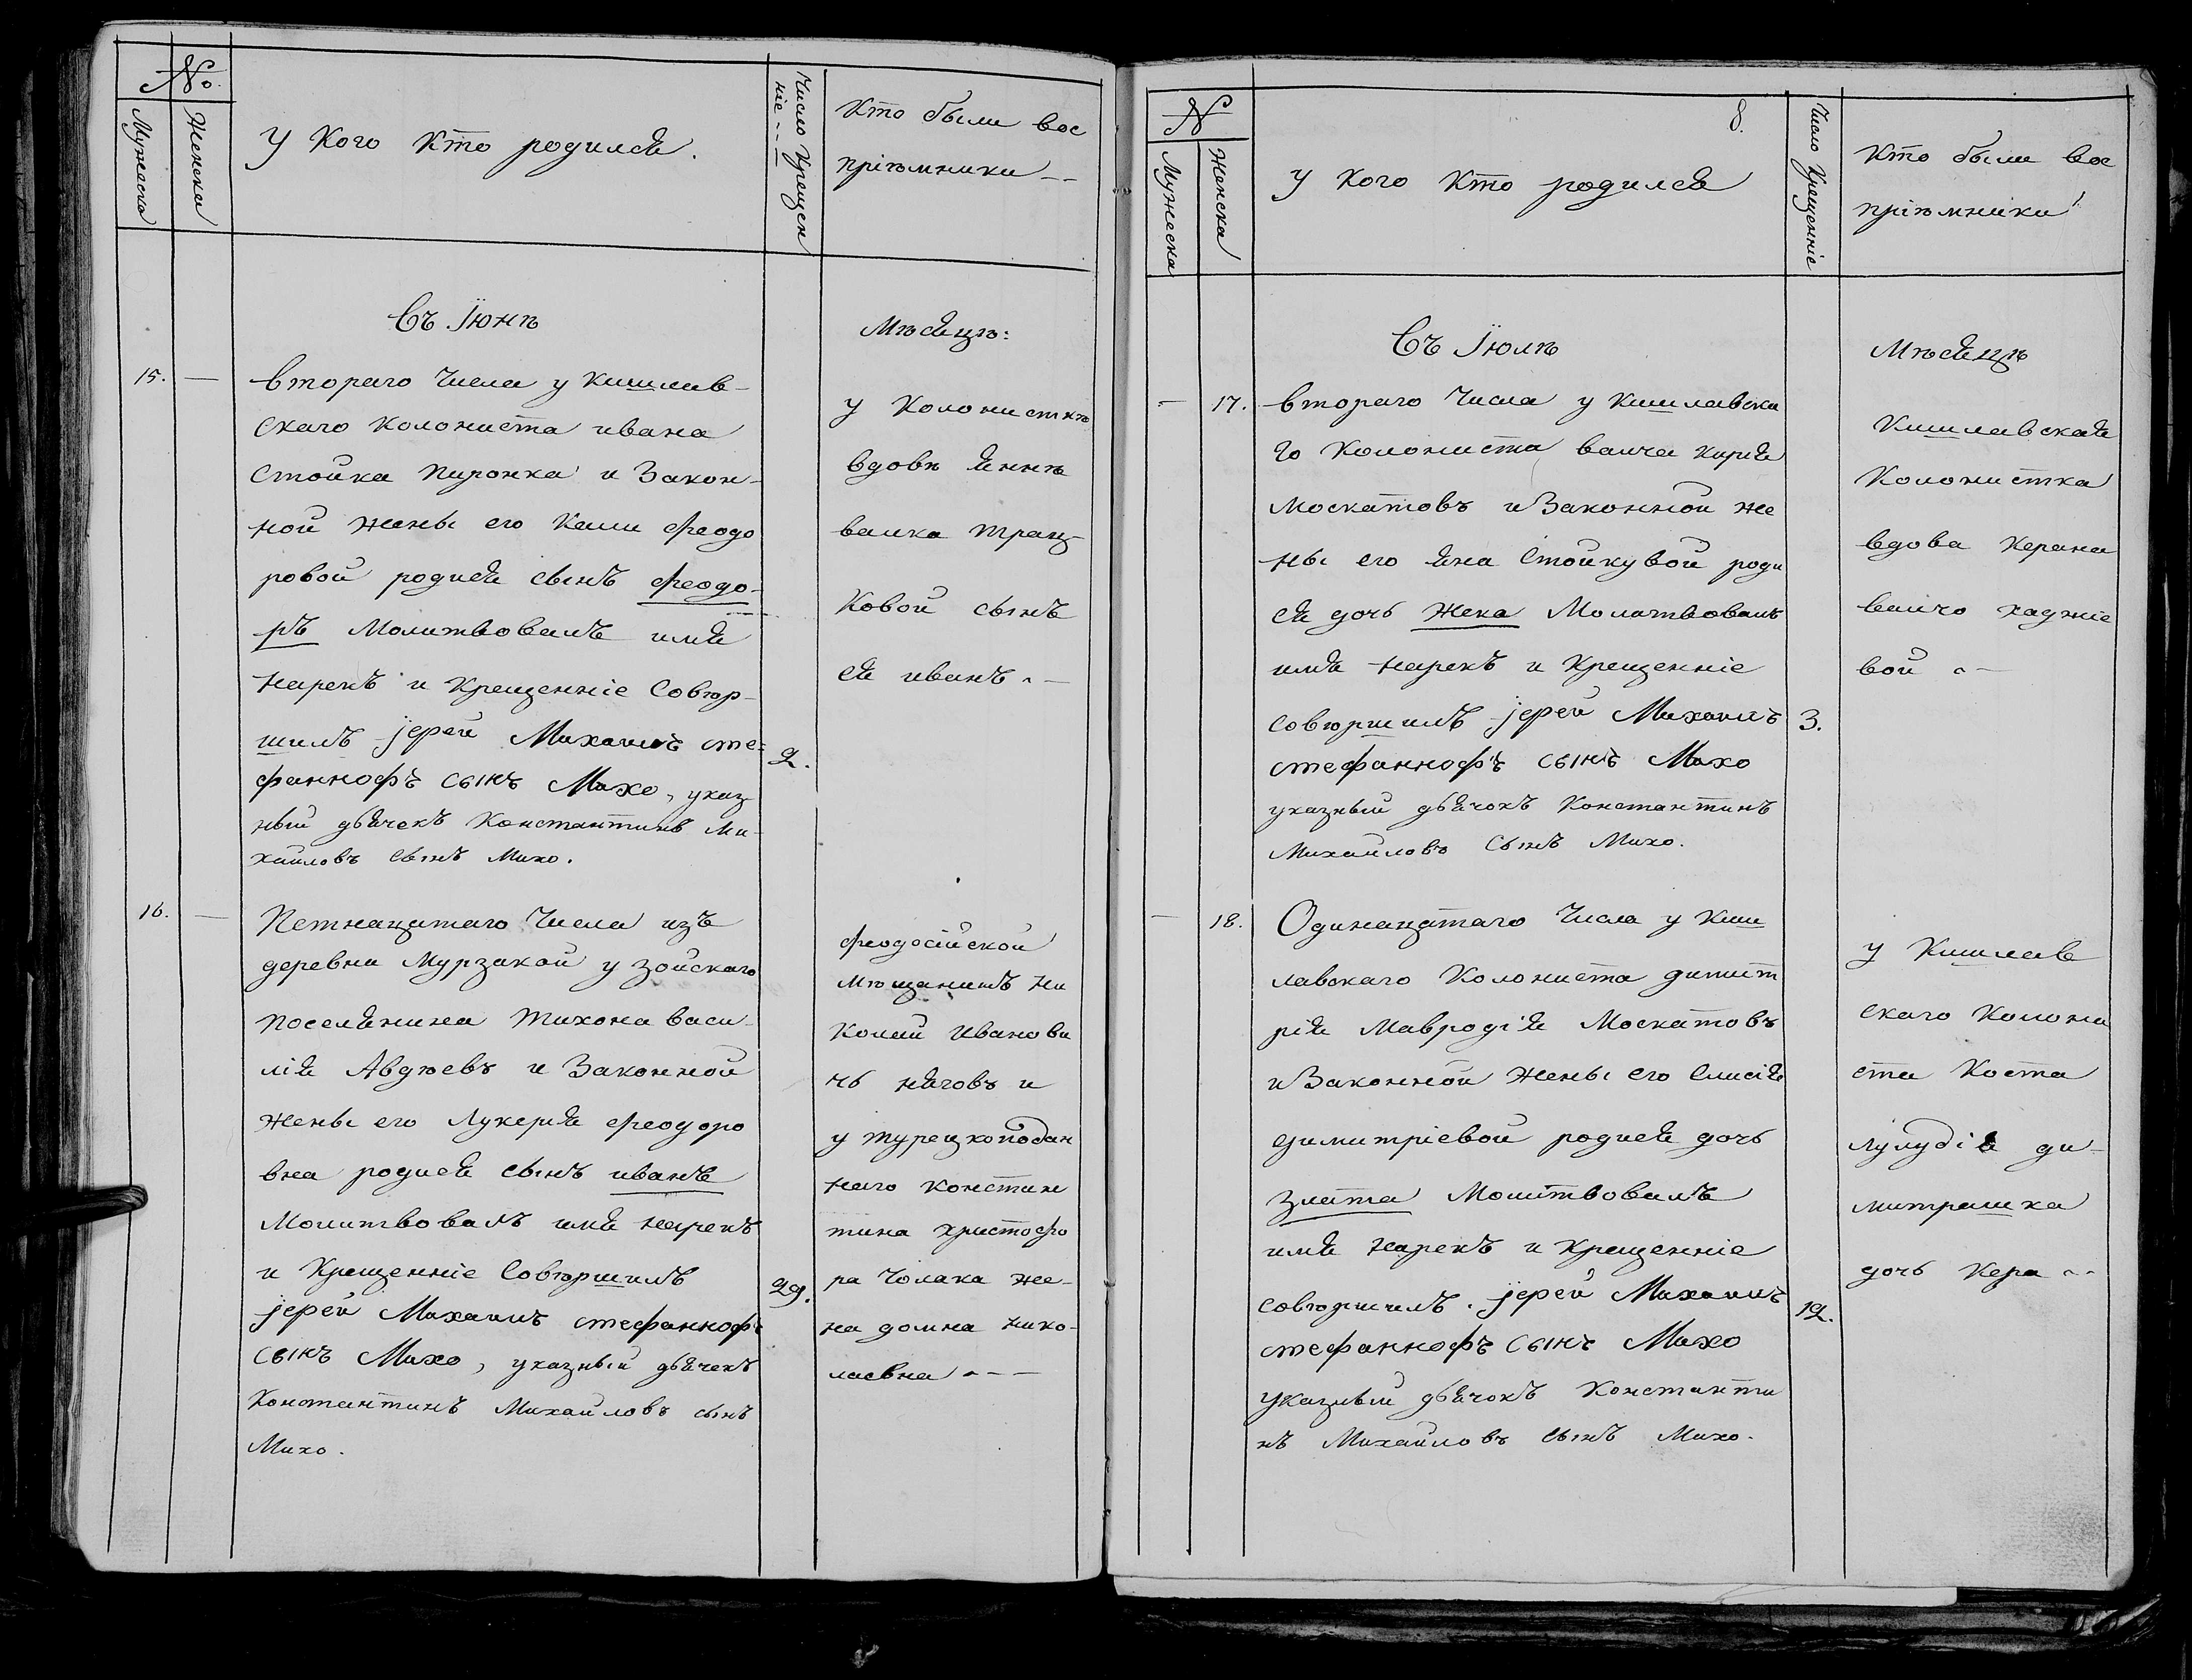 №
Мужеска
Женска
У Кого Кто родился.
Число Крещен
ніе
Кто были вос
пріѣмники
Съ Іюнѣ
Мѣсяцѣ:
15. —
втораго Числа у Кишлав-
скаго Колониста ивана
Стойка Пиронка и Закон-
ной жены его Кали феодо
ровой родися сынъ феодо-
ръ Молитвовалъ имя
Нарекъ и Крещенніе Совѣр-
шилъ іерей Михаилъ сте=
фанноф сынъ Михо, указ
ный дьячекъ Константинъ Ми-
хайловъ сынъ Михо.
2.
у Колонисткѣ
вдовѣ яннѣ
валка транд-
Ковой сынъ
ея иванъ. —
16. —
Петнацатаго Числа изъ
деревни Мурзакой у зойскаго
поселянина тихона васи-
лія Авдѣевъ и Законной
Жены его Лукерия феодоро
вна родися сынъ иванъ
Молитвовалъ имя нарекъ
и Крещенніе Совѣршилъ
іерей Михаилъ стефанноф
сынъ Михо, указный дьячекъ
Константинъ Михайловъ сынъ
Михо.
29.
феодосійской
мѣщанинъ Ни
колай Иванови
чь няговъ и
у турецкоподан
наго констан
тина христофо
ра Чолака же-
на домна нико-
лаевна - - -
№
Мужеска
Женска
8.
У Кого Кто родился
Число Крещенніе
Кто были вос
пріѣмники
Съ Іюлѣ
Мѣсяцѣ
— 17.
втораго Числа у Кишлавска
го Колониста валча киряя
москатовъ и Законной же
ны его яна Стойкувой роди
ся дочь Жека Молитвовалъ
имя нарекъ и Крещенніе
совѣршилъ іерей Михаилъ
стефаннофъ сынъ Михо
указный дьячокъ Константинъ
Михайловъ Сынъ Михо.
3.
Кишлавская
Колонистка
вдова Керана
валчо хаджіе
вой . —
— 18.
Одинацатаго Числа у Киш
лавскаго Колониста димит
рія Мавродія Москатовъ
и Законной Жены его Елисія
димитріевой родися дочь
Злата Молитвовалъ
имя нарекъ и Крещенніе
совѣршилъ. іерей Михаилъ
стефаннофъ сынъ Михо
указный дьячокъ Константи
нъ Михайловъ сынъ Михо.
12.
у Кишлав
скаго Колони
ста Коста
лулудія ди-
митрашка
дочь Кера - -